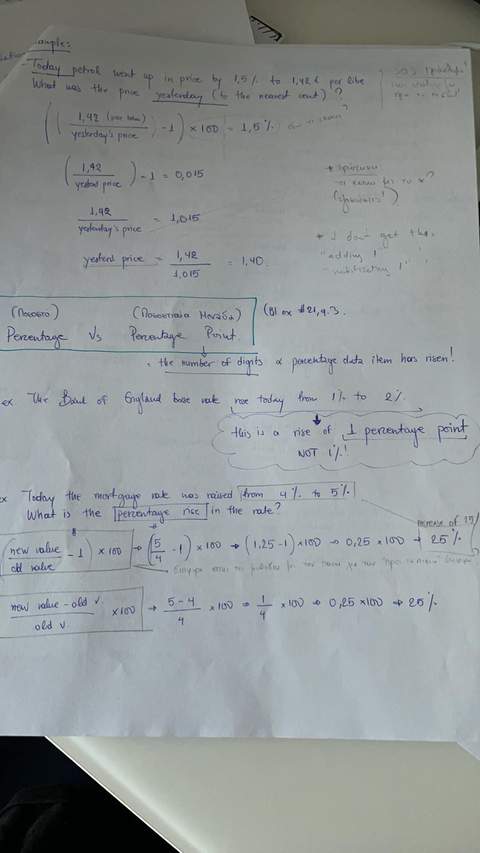 Today petrol went up in price by 1,5% to 1,42£ per litre
What was the price yesterday (to the nearest cent)?
((1,42 / yesterday's price) - 1) × 100 = 1,5%
(1,42 / yesterd price) - 1 = 0,015
1,42 / yesterday's price = 1,015
yesterd price = 1,42 / 1,015 = 1,40.
* I don't get the
"adding 1"
(Ποσοστό) (Ποσοστιαία Μονάδα)
Percentage Vs Percentage Point.
the number of digits a percentage data item has risen!
ex The Bank of England base rate rose today from 1% to 2%.
this is a rise of 1 percentage point
NOT 1%!
ex Today the mortgage rate was raised from 4% to 5%.
What is the percentage rise in the rate?
(new value / old value - 1) × 100 → (5/4 - 1) × 100 → (1,25 - 1) × 100 → 0,25 × 100 → 25%
new value - old v. / old v × 100 → 5-4 / 4 × 100 = 1/4 × 100 → 0,25 × 100 → 25%